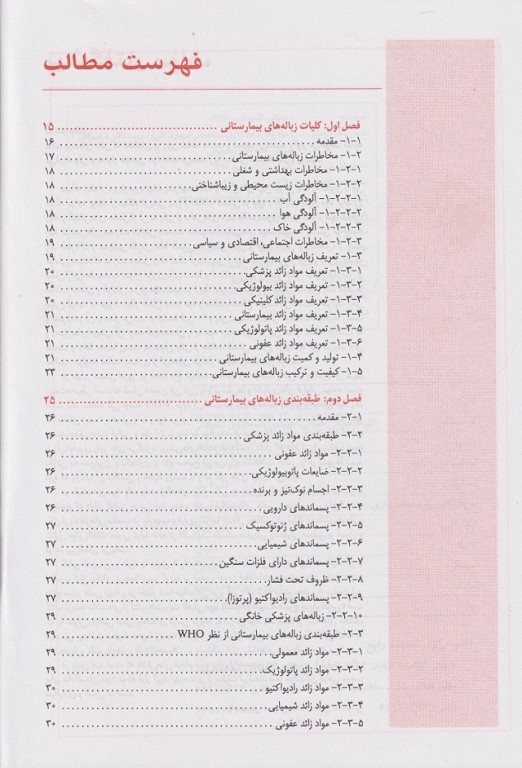 فهرست مطالب
فصل اول: کلیات زباله‌های بیمارستانی ........ ۱۵
۱-۱- مقدمه ........ ۱۶
۱-۲- مخاطرات زباله‌های بیمارستانی ........ ۱۷
۱-۲-۱- مخاطرات بهداشتی و شغلی ........ ۱۸
۱-۲-۲- مخاطرات زیست محیطی و زیباشناختی ........ ۱۸
۱-۲-۲-۱- آلودگی آب ........ ۱۸
۱-۲-۲-۲- آلودگی هوا ........ ۱۸
۱-۲-۲-۳- آلودگی خاک ........ ۱۸
۱-۲-۳- مخاطرات اجتماعی، اقتصادی و سیاسی ........ ۱۹
۱-۳- تعریف زباله‌های بیمارستانی ........ ۱۹
۱-۳-۱- تعریف مواد زائد پزشکی ........ ۲۰
۱-۳-۲- تعریف مواد زائد بیولوژیکی ........ ۲۰
۱-۳-۳- تعریف مواد زائد کلینیکی ........ ۲۰
۱-۳-۴- تعریف مواد زائد بیمارستانی ........ ۲۱
۱-۳-۵- تعریف مواد زائد پاتولوژیکی ........ ۲۱
۱-۳-۶- تعریف مواد زائد عفونی ........ ۲۱
۱-۴- تولید و کمیت زباله‌های بیمارستانی ........ ۲۱
۱-۵- کیفیت و ترکیب زباله‌های بیمارستانی ........ ۲۳
فصل دوم: طبقه‌بندی زباله‌های بیمارستانی ........ ۲۵
۲-۱- مقدمه ........ ۲۶
۲-۲- طبقه‌بندی مواد زائد پزشکی ........ ۲۶
۲-۲-۱- مواد زائد عفونی ........ ۲۶
۲-۲-۲- ضایعات پاتوبیولوژیکی ........ ۲۶
۲-۲-۳- اجسام نوک‌تیز و برنده ........ ۲۶
۲-۲-۴- پسماندهای دارویی ........ ۲۶
۲-۲-۵- پسماندهای ژنوتوکسیک ........ ۲۷
۲-۲-۶- پسماندهای شیمیایی ........ ۲۷
۲-۲-۷- پسماندهای دارای فلزات سنگین ........ ۲۷
۲-۲-۸- ظروف تحت فشار ........ ۲۷
۲-۲-۹- پسماندهای رادیواکتیو (پرتوزا) ........ ۲۷
۲-۲-۱۰- زباله‌های پزشکی خانگی ........ ۲۹
۲-۳- طبقه‌بندی زباله‌های بیمارستانی از نظر WHO ........ ۲۹
۲-۳-۱- مواد زائد معمولی ........ ۲۹
۲-۳-۲- مواد زائد پاتولوژیک ........ ۲۹
۲-۳-۳- مواد زائد رادیواکتیو ........ ۳۰
۲-۳-۴- مواد زائد شیمیایی ........ ۳۰
۲-۳-۵- مواد زائد عفونی ........ ۳۰